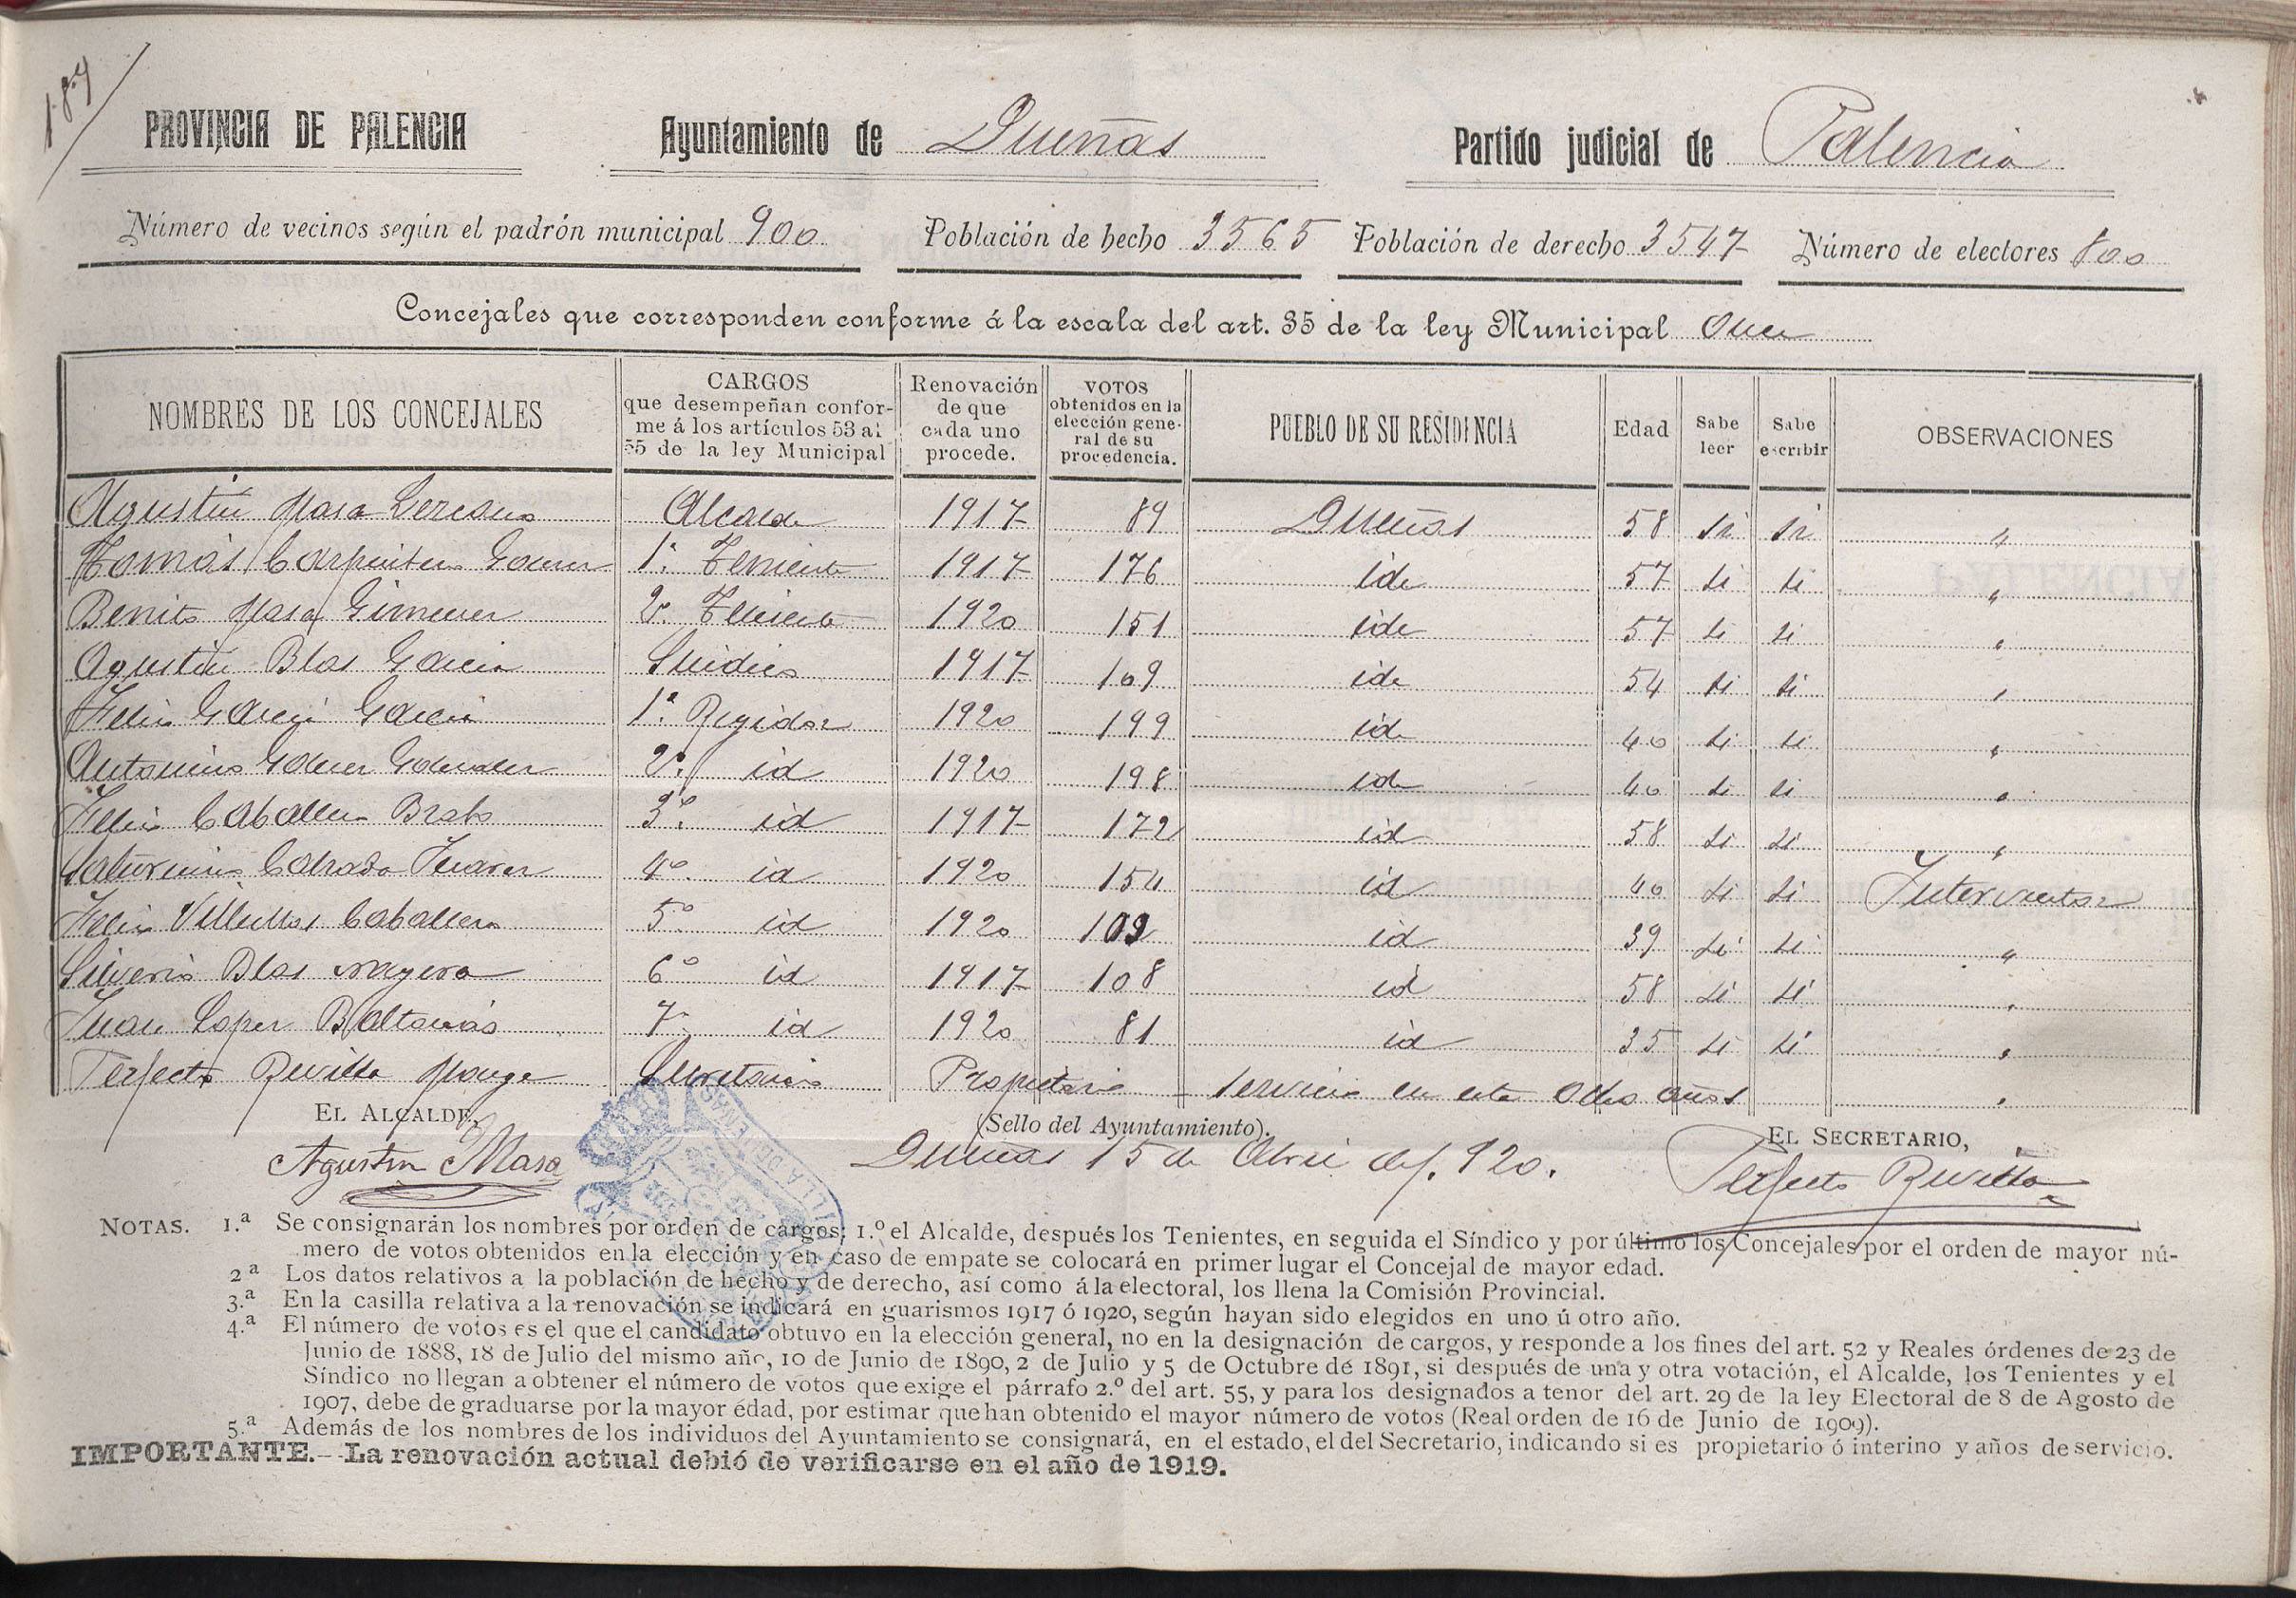 187
PROVINCIA DE PALENCIA Ayuntamiento de Dueñas Partido judicial de Palencia
Número de vecinos según el padrón municipal 900 Población de hecho 3565 Población de derecho 3547 Número de electores 800
Concejales que corresponden conforme á la escala del art. 35 de la ley Municipal Once
NOMBRES DE LOS CONCEJALES
CARGOS
que desempeñan confor-
me á los artículos 53 al
55 de la ley Municipal
Renovación
de que
cada uno
procede.
VOTOS
obtenidos en la
elección gene-
ral de su
procedencia.
PUEBLO DE SU RESIDENCIA
Edad
Sabe
leer
Sabe
escribir
OBSERVACIONES
Agustín Masa Alcalde 1917 89 Dueñas 58 si si "
Tomás Carpintero Gómez 1º. Teniente 1917 176 ide 57 si si "
Benito Masa Gimenez 2º. Teniente 1920 151 ide 57 si si "
Agustín Blas García Síndico 1917 109 ide 54 si si "
Félix García García 1º. Regidor 1920 199 id 40 si si "
Antonino 2º. id 1920 198 ide 40 si si "
Félix Caballero 3º. id 1917 172 id 58 si si "
Saturnino 4º. id 1920 154 id 40 si si Interventor
Félix Villullas Caballero 5º id 1920 102 id 39 si si "
Silverio Blas mayora 6º id 1917 108 id 58 si si "
Juan Lopez Baltanás 7º id 1920 81 id 35 si si "
Perfecto Revilla Monge Secretario Propietario servicio en este Ocho años "
EL ALCALDE,
(Sello del Ayuntamiento).
EL SECRETARIO,
Agustin Masa
Dueñas 15 de Abril de 1920.
Perfecto Revilla
NOTAS. 1.ª Se consignarán los nombres por orden de cargos; 1.º el Alcalde, después los Tenientes, en seguida el Síndico y por último los Concejales por el orden de mayor nú-
mero de votos obtenidos en la elección y en caso de empate se colocará en primer lugar el Concejal de mayor edad.
2ª Los datos relativos a la población de hecho y de derecho, así como á la electoral, los llena la Comisión Provincial.
3.ª En la casilla relativa a la renovación se indicará en guarismos 1917 ó 1920, según hayan sido elegidos en uno ú otro año.
4.ª El número de votos es el que el candidato obtuvo en la elección general, no en la designación de cargos, y responde a los fines del art. 52 y Reales órdenes de 23 de
Junio de 1888, 18 de Julio del mismo año, 10 de Junio de 1890, 2 de Julio y 5 de Octubre de 1891, si después de una y otra votación, el Alcalde, los Tenientes y el
Síndico no llegan a obtener el número de votos que exige el párrafo 2.º del art. 55, y para los designados a tenor del art. 29 de la ley Electoral de 8 de Agosto de
1907, debe de graduarse por la mayor edad, por estimar que han obtenido el mayor número de votos (Real orden de 16 de Junio de 1909).
5.ª Además de los nombres de los individuos del Ayuntamiento se consignará, en el estado, el del Secretario, indicando si es propietario ó interino y años de servicio.
IMPORTANTE.--La renovación actual debió de verificarse en el año de 1919.